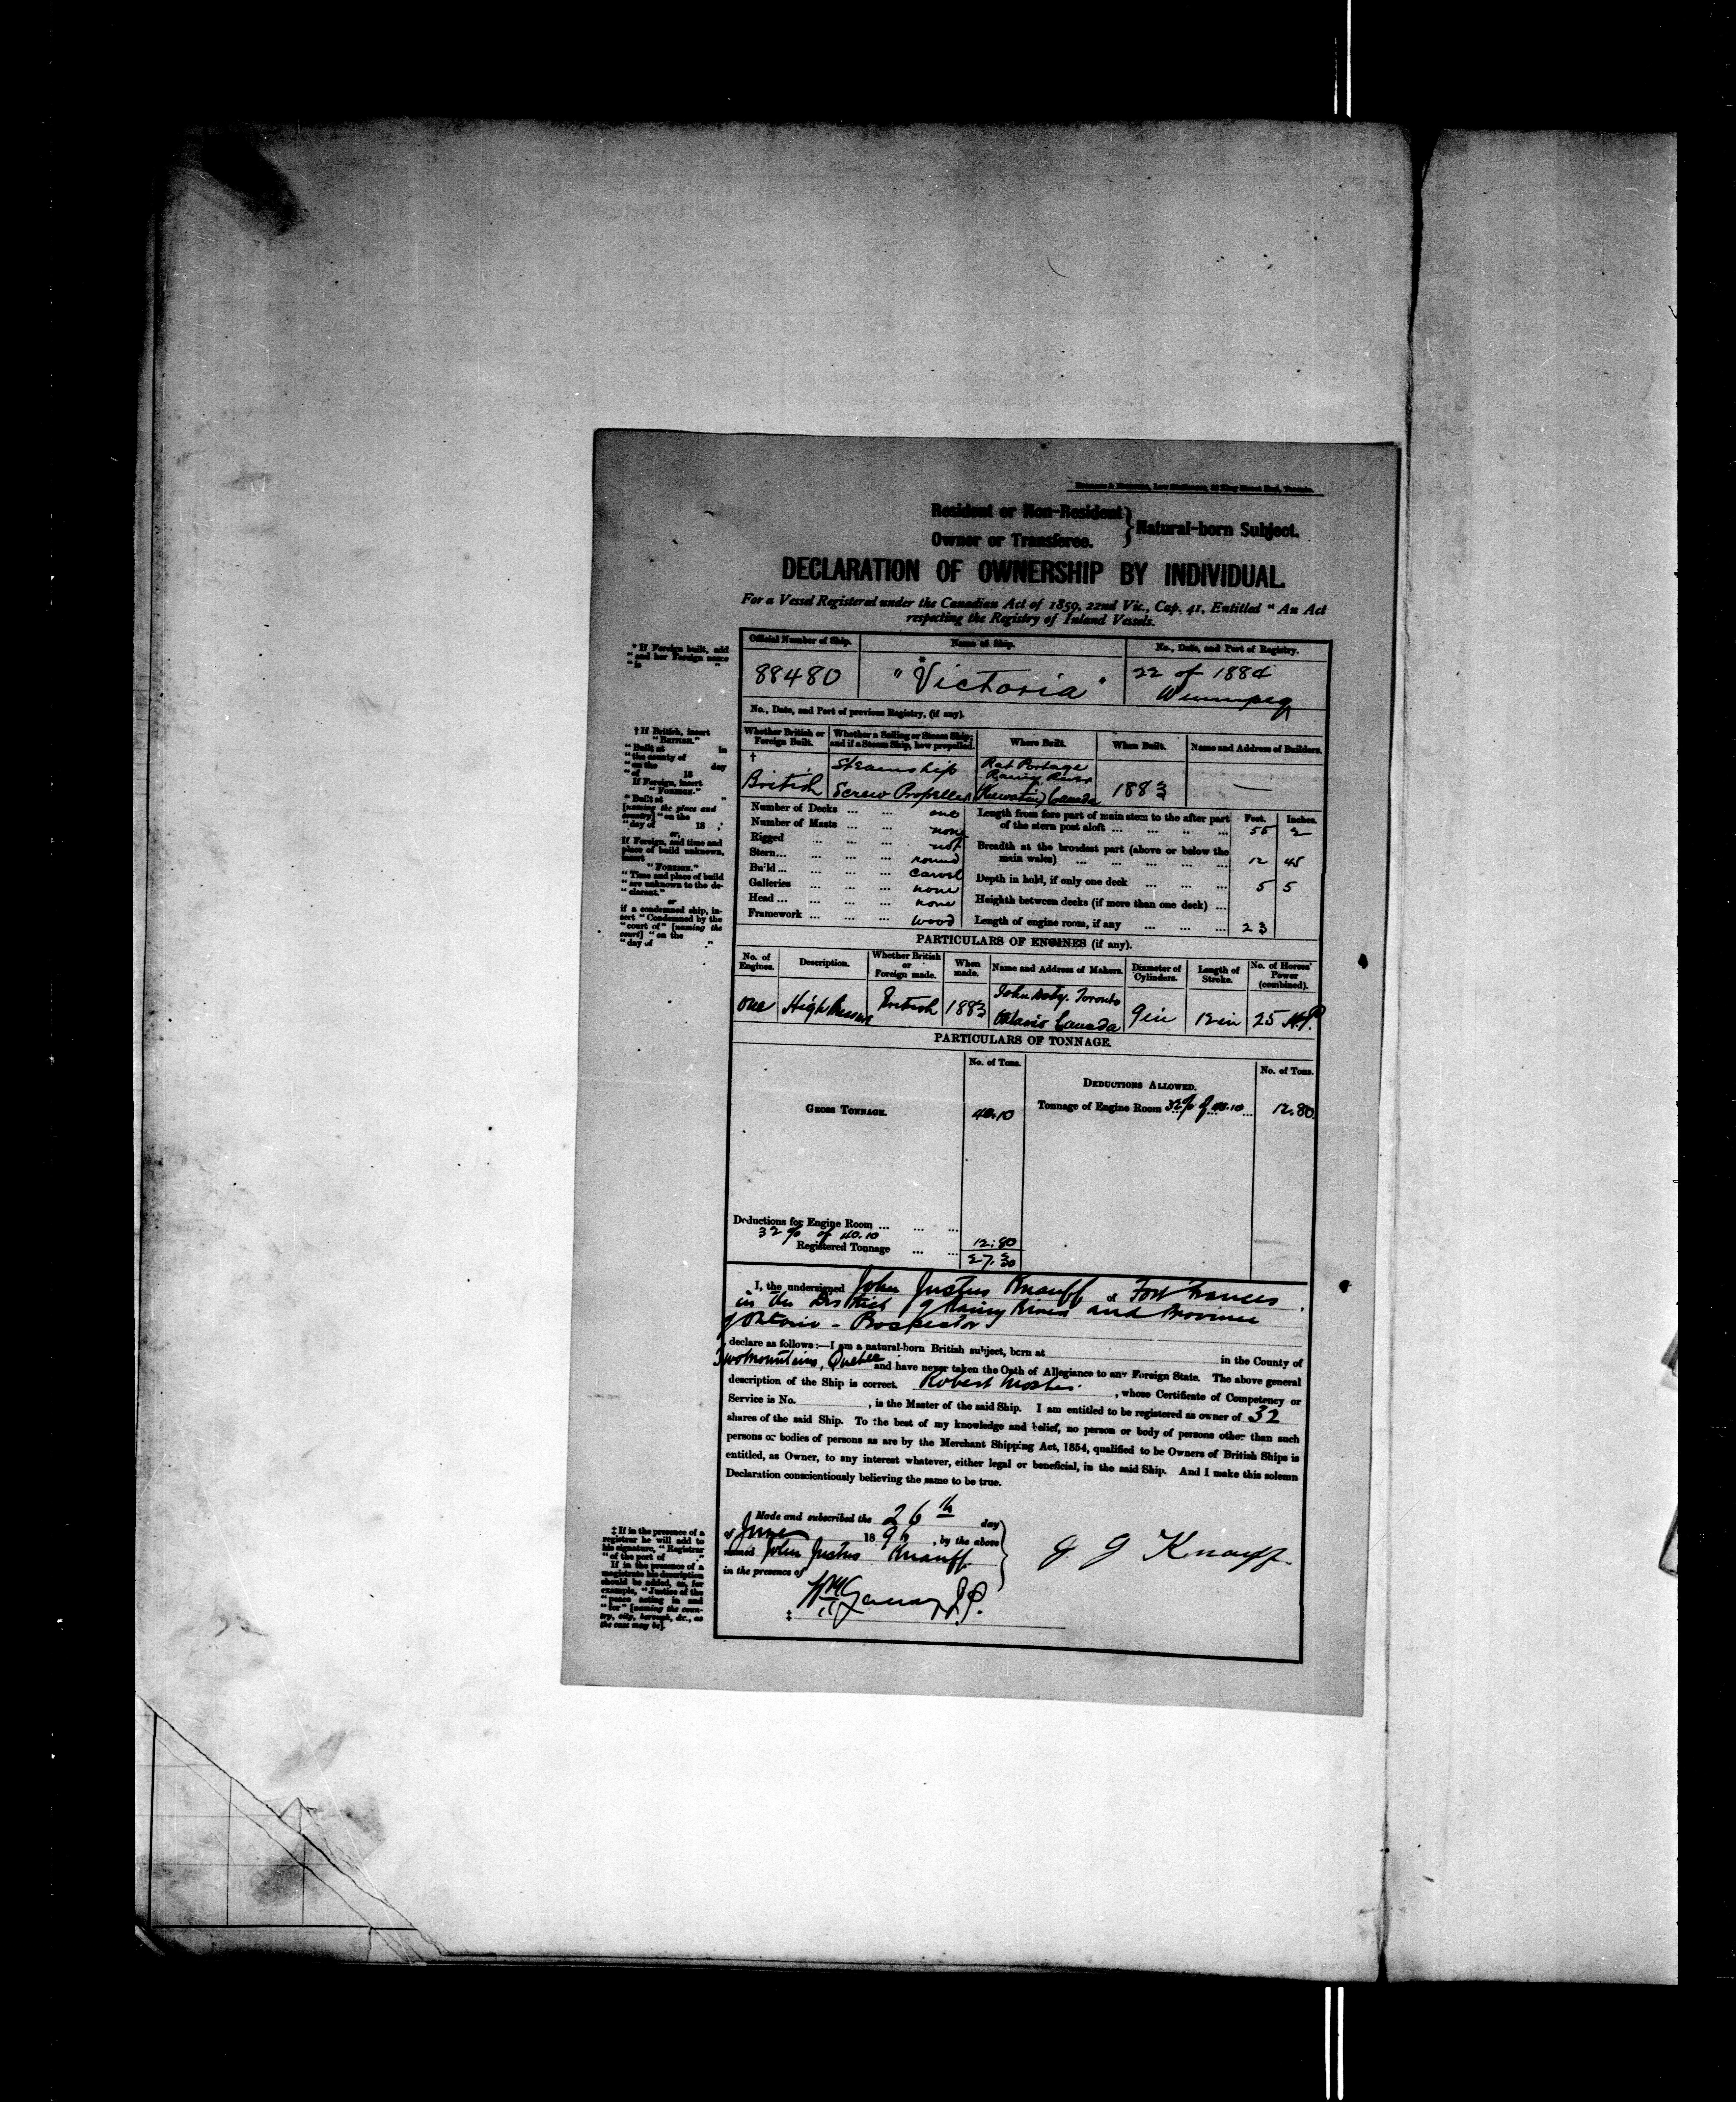 Resident or Non-Resident } Natural-born Subject.
Owner or Transferee.
DECLARATION OF OWNERSHIP BY INDIVIDUAL.
For a Vessel Registered under the Canadian Act of 1859, 22nd Vic., Cap. 41, Entitled "An Act
respecting the Registry of Inland Vessels.
* If Foreign built, add
"and her Foreign name
"is "
Official Number of Ship. Name of Ship. No., Date, and Port of Registry.
88480 * "Victoria" 22 of 1884
Winnipeg
No., Date, and Port of previous Registry, (if any).
† If British, insert
"BRITISH."
"Built at in
"the county of
"on the day
"of 18
If Foreign, insert
"FOREIGN."
"Built at "
[naming the place and
country] "on the
"day of 18 ,"
or,
If Foreign, and time and
place of build unknown,
insert
"FOREIGN."
"Time and place of build
"are unknown to the de-
"clarant."
or
if a condemned ship, in-
sert "Condemned by the
"court of" [naming the
court] "on the
"day of "
Whether British or Foreign Built. Whether a Sailing or Steam Ship; and if a Steam Ship, how propelled. Where Built. When Built. Name and Address of Builders.
† Steamship Rat Portage
Rainy River
British Screw Propeller (Keewatin) Canada 1883 —
Number of Decks ... ... one
Number of Masts ... ... none
Rigged ... ... ... not
Stern... ... ... ... round
Build ... ... ... ... carvel
Galleries ... ... ... none
Head ... ... ... ... none
Framework ... ... ... wood
Length from fore part of main stem to the after part Feet. Inches.
of the stern post aloft ... ... ... ... 55 2
Breadth at the broadest part (above or below the
main wales) ... ... ... ... ... 12 45
Depth in hold, if only one deck ... ... ... 5 5
Heighth between decks (if more than one deck) ...
Length of engine room, if any ... ... ... 23
PARTICULARS OF ENGINES (if any).
No. of Engines. Description. Whether British or Foreign made. When made. Name and Address of Makers. Diameter of Cylinders. Length of Stroke. No. of Horses' Power (combined).
John Doty. Toronto
one High Pressure British 1883 Ontario Canada 9 in 12 in 25 H.P.
PARTICULARS OF TONNAGE.
No. of Tons. No. of Tons.
DEDUCTIONS ALLOWED.
GROSS TONNAGE. 40.10 Tonnage of Engine Room 32% of 40.10 ... 12.80
Deductions for Engine Room ... ... ...
32% of 40.10 12.80
Registered Tonnage ... ... 27.30
I, the undersigned John Justus Knauff of Fort Frances
in the District of Rainy River and Province
of Ontario - Prospector
declare as follows:—I am a natural-born British subject, born at in the County of
Two Mountains, Quebec and have never taken the Oath of Allegiance to any Foreign State. The above general
description of the Ship is correct. Robert , whose Certificate of Competency or
Service is No. , is the Master of the said Ship. I am entitled to be registered as owner of 32
shares of the said Ship. To the best of my knowledge and belief, no person or body of persons other than such
persons or bodies of persons as are by the Merchant Shipping Act, 1854, qualified to be Owners of British Ships is
entitled, as Owner, to any interest whatever, either legal or beneficial, in the said Ship. And I make this solemn
Declaration conscientiously believing the same to be true.
‡ If in the presence of a
registrar he will add to
his signature, "Registrar
"of the port of "
If in the presence of a
magistrate his description
should be added, as, for
example, "Justice of the
"peace acting in and
"for" [naming the coun-
try, city, borough, &c., as
the case may be].
Made and subscribed the 26th day
of June 18 , by the above
named John Justus Knauff
in the presence of
J J Knauff
‡ J.P.